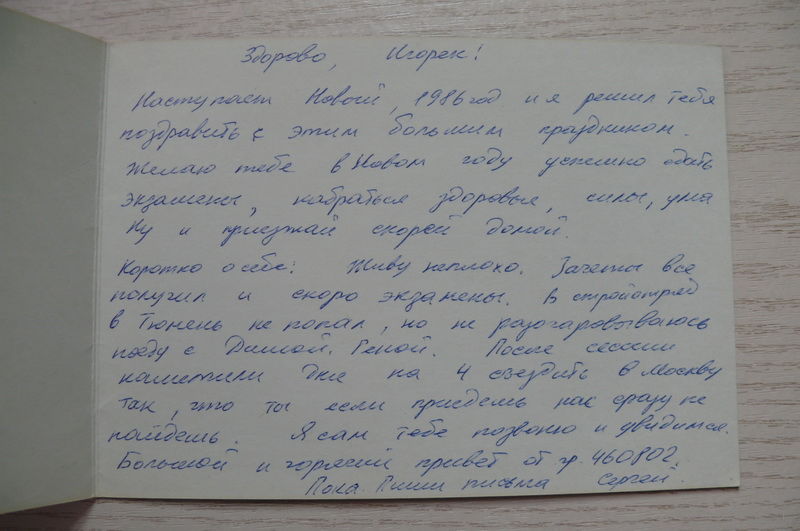 Здорово, Игорек!
Наступает Новый, 1986 год и я решил тебя
поздравить с этим большим праздником.
Желаю тебе в Новом году успешно сдать
экзамены, набраться здоровья, силы, ума
Ну и приезжай скорей домой.
Коротко о себе: Живу неплохо. Зачеты все
получил и скоро экзамены. В стройотряд
в Тюмень не попал, но не разочаровываюсь
поеду с Димой, Геной. После сессии
наметили дня на 4 съездить в Москву
так, что ты если приедешь нас сразу не
найдешь. Я сам тебе позвоню и увидимся.
Большой и горячий привет от гр. 460802.
Пока. Пиши письма Сергей.